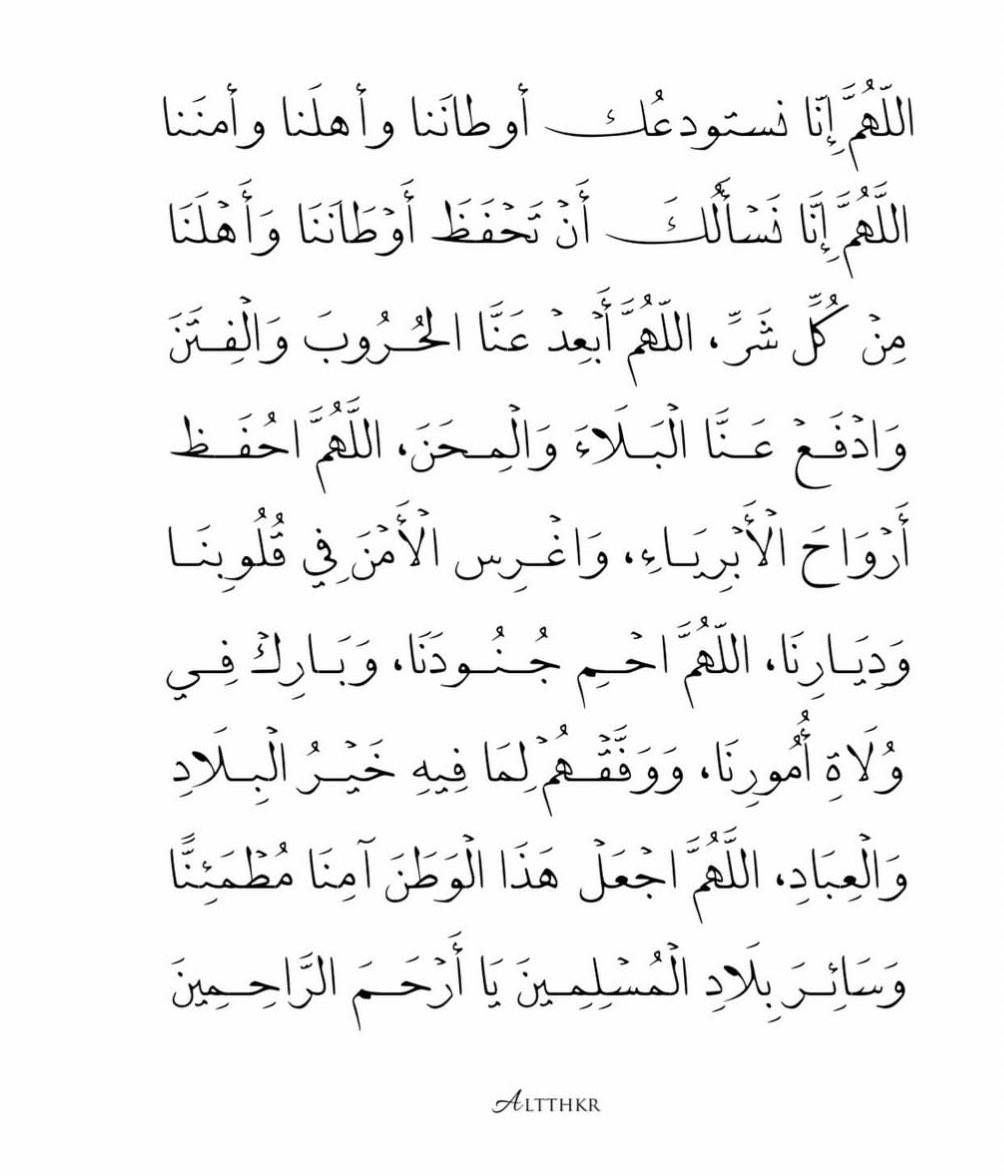 اللّهُمَّ إِنّا نستودعُك أوطانَنا وأهلَنا وأمنَنا
اللَّهُمَّ إِنَّا نَسْأَلُكَ أَنْ تَحْفَظَ أَوْطَانَنَا وَأَهْلَنَا
مِنْ كُلِّ شَرٍّ، اللّهُمَّ أَبْعِدْ عَنَّا الحُرُوبَ وَالْفِتَنَ
وَادْفَعْ عَنَّا الْبَلَاءَ وَالْمِحَنَ، اللَّهُمَّ احُفَظ
أَرْوَاحَ الْأَبْرِيَاءِ، وَاغْرِس الْأَمْنَ فِي قُلُوبِنَا
وَدِيَارِنَا، اللّهُمَّ احْمِ جُنُودَنَا، وَبَارِكْ فِي
وُلَاةِ أُمُورِنَا، وَوَفَّقْهُمْ لِمَا فِيهِ خَيْرُ الْبِلَادِ
وَالْعِبَادِ، اللَّهُمَّ اجْعَلْ هَذَا الْوَطَنَ آمِنَا مُطْمَئِنًّا
وَسَائِرَ بِلَادِ الْمُسْلِمِينَ يَا أَرْحَمَ الرَّاحِمِينَ
ALTTHKR